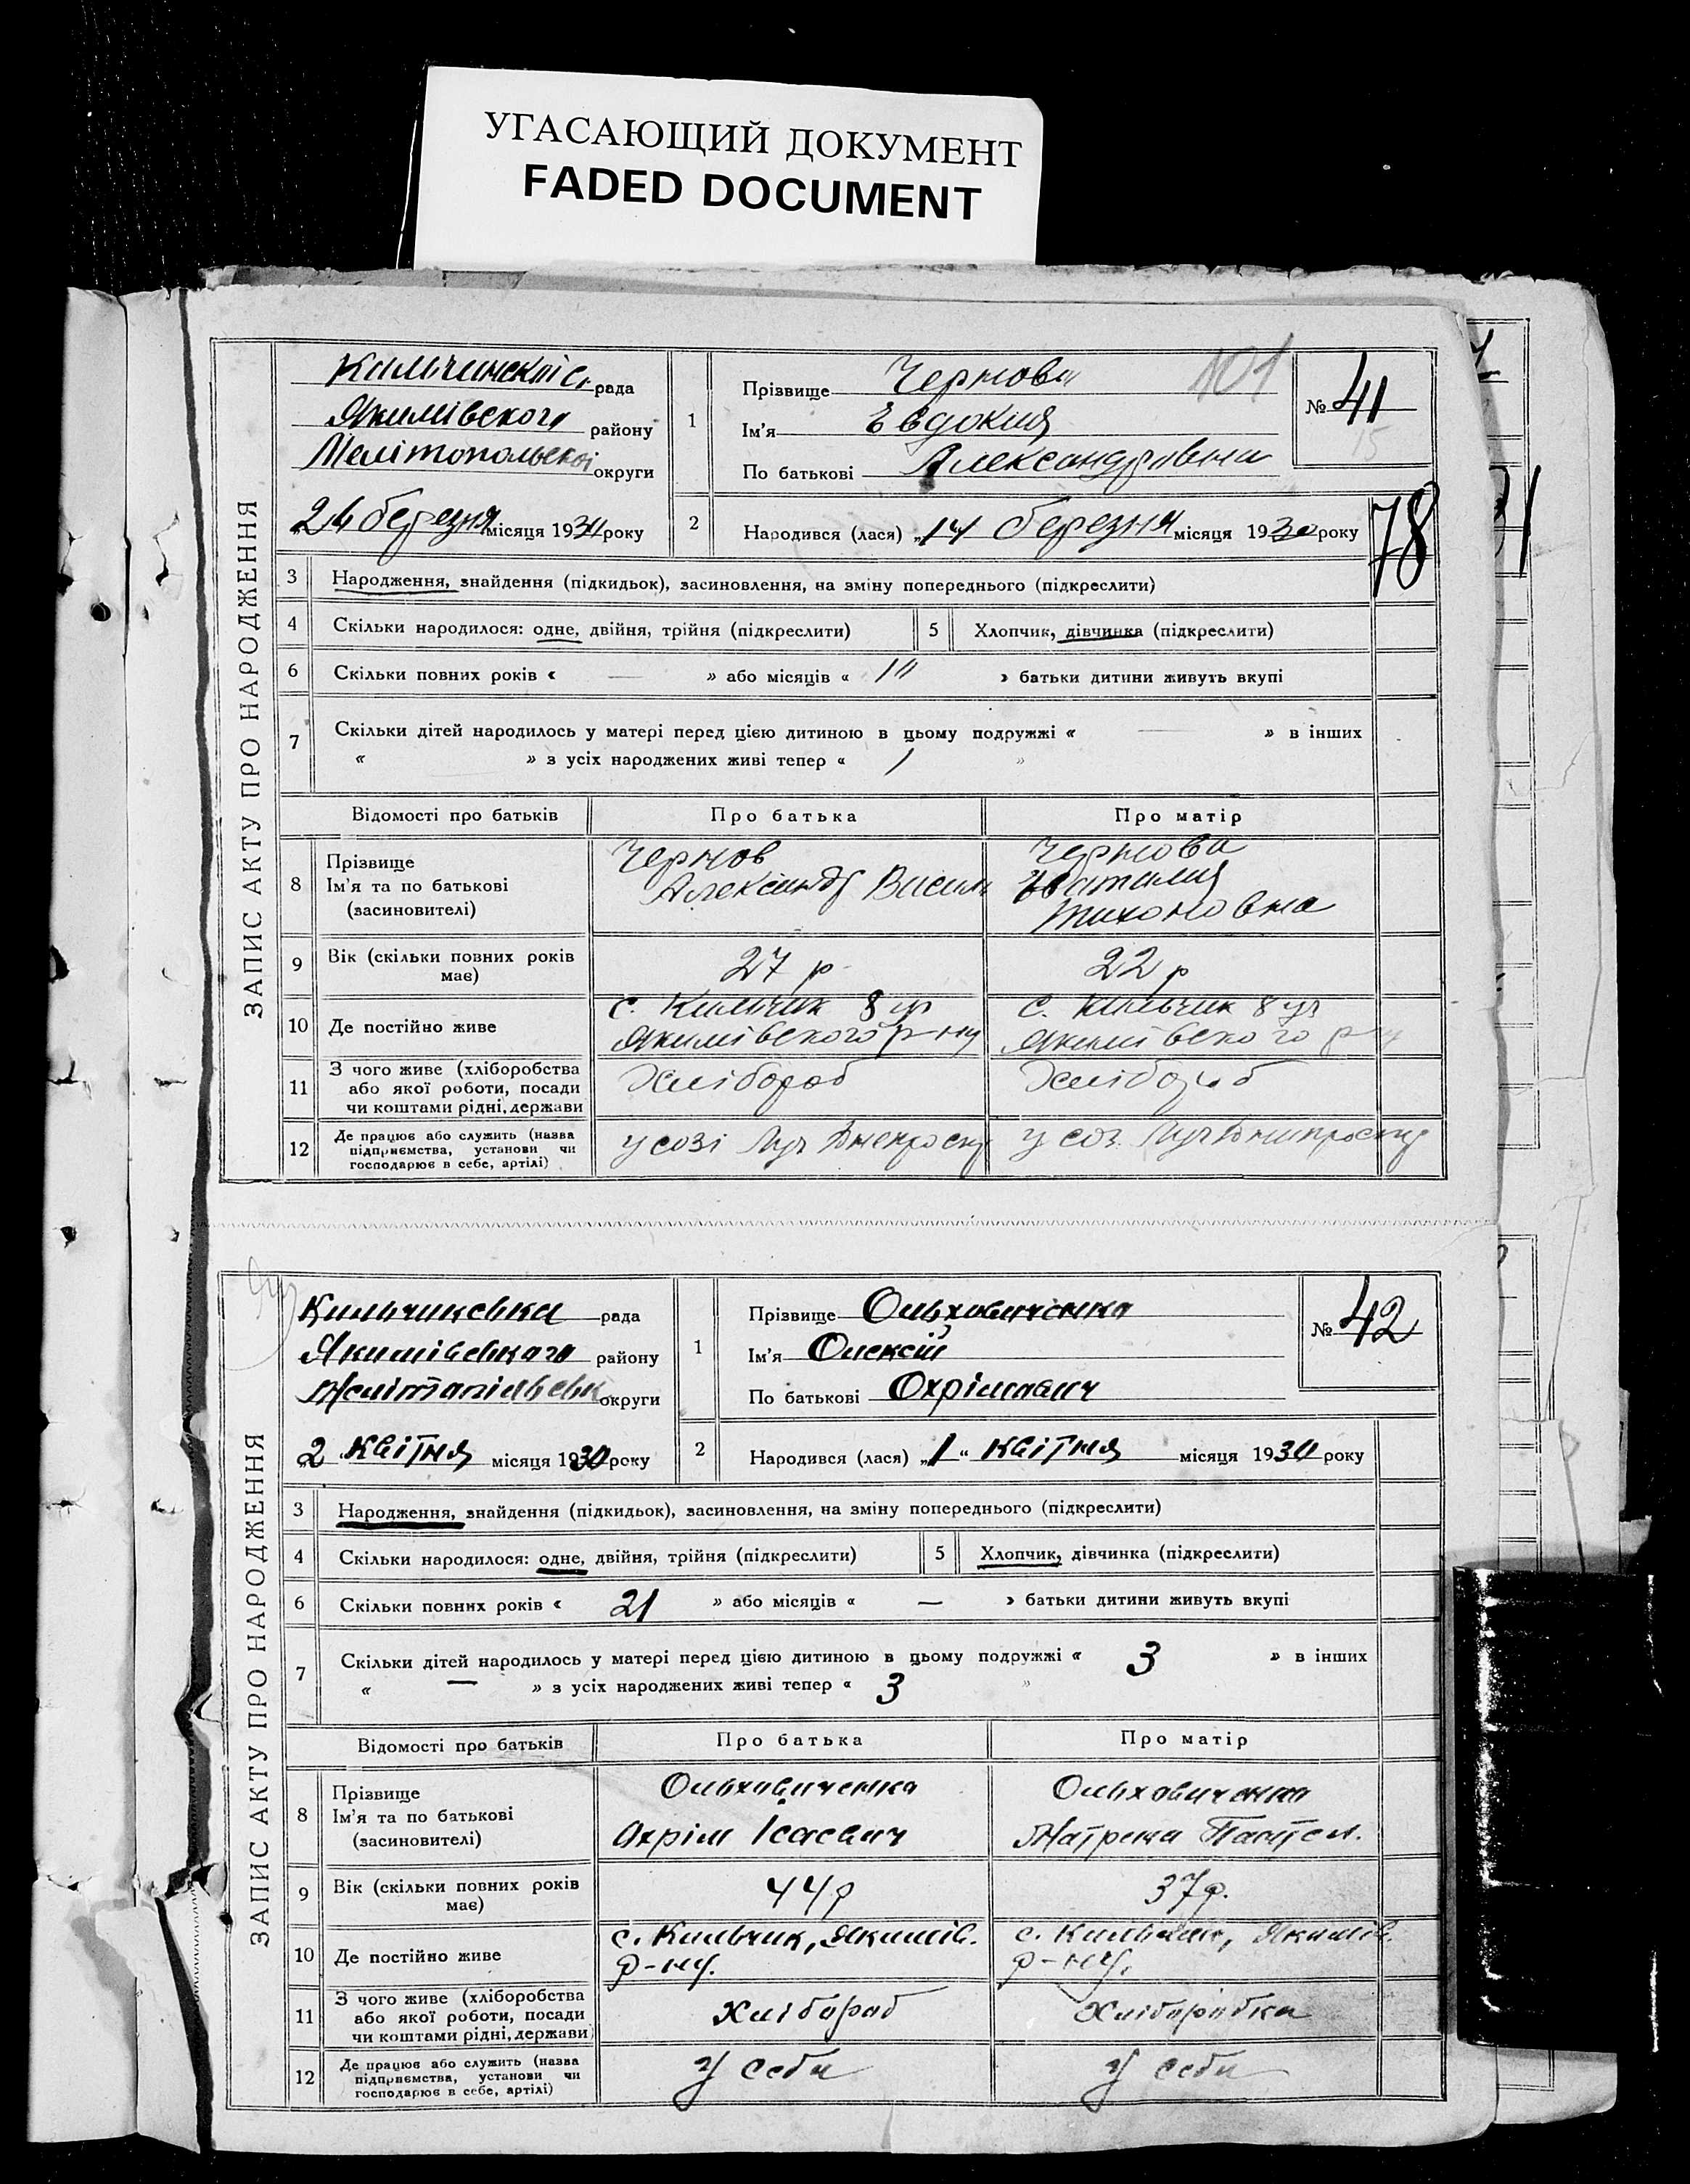 УГАСАЮЩИЙ ДОКУМЕНТ
FADED DOCUMENT
ЗАПИС АКТУ ПРО НАРОДЖЕННЯ
рада
Якимівского району
Мелітопольскої округи
26 березня місяця 1930 року
1
Прізвище Чернова
101
Ім'я Евдокия
По батькові Александровна
№ 41
15
2
Народився (лася) „14 березня місяця 1930 року
78
3 Народження, знайдення (підкидьок), засиновлення, на зміну попереднього (підкреслити)
4 Скільки народилося: одне, двійня, трійня (підкреслити) 5 Хлопчик, дівчинка (підкреслити)
6 Скільки повних років « — » або місяців « » батьки дитини живуть вкупі
7 Скільки дітей народилось у матері перед цією дитиною в цьому подружжі « — » в інших
« » з усіх народжених живі тепер « 1 »
Відомості про батьків Про батька Про матір
8 Прізвище
Ім'я та по батькові
(засиновителі)
Чернов
Александр Васил
Чернова
Наталия
Тихоновна
9 Вік (скільки повних років має) 27 р 22 р
10 Де постійно живе
с. Кильчик 8 уч
Якимівского р-ну
с. Кильчик 8 уч
Якимівского р-н
11 З чого живе (хліборобства
або якої роботи, посади
чи коштами рідні, держави
Хлібороб
Хлібороб
12 Де працює або служить (назва
підприємства, установи чи
господарює в себе, артілі)
у созі Луч
у соз. Луч
ЗАПИС АКТУ ПРО НАРОДЖЕННЯ
Кильчикська рада
Якимівського району
Мелітопільськ округи
2 квітня місяця 1930 року
1
Прізвище Ольховиченко
Ім'я Олексій
По батькові Охрімович
№ 42
2
Народився (лася) „1“ квітня місяця 1930 року
3 Народження, знайдення (підкидьок), засиновлення, на зміну попереднього (підкреслити)
4 Скільки народилося: одне, двійня, трійня (підкреслити) 5 Хлопчик, дівчинка (підкреслити)
6 Скільки повних років « 21 » або місяців « — » батьки дитини живуть вкупі
7 Скільки дітей народилось у матері перед цією дитиною в цьому подружжі « 3 » в інших
« — » з усіх народжених живі тепер « 3 »
Відомості про батьків Про батька Про матір
8 Прізвище
Ім'я та по батькові
(засиновителі)
Ольховиченко
Охрім Ісаєвич
Ольховиченко
Мотрена Пантел.
9 Вік (скільки повних років має) 44 р 37 р.
10 Де постійно живе
с. Кильчик, Якимів.
р-ну.
с. Кильчик, Якимів.
р-ну.
11 З чого живе (хліборобства
або якої роботи, посади
чи коштами рідні, держави)
Хлібороб
Хліборобка
12 Де працює або служить (назва
підприємства, установи чи
господарює в себе, артілі)
У себи
У себи